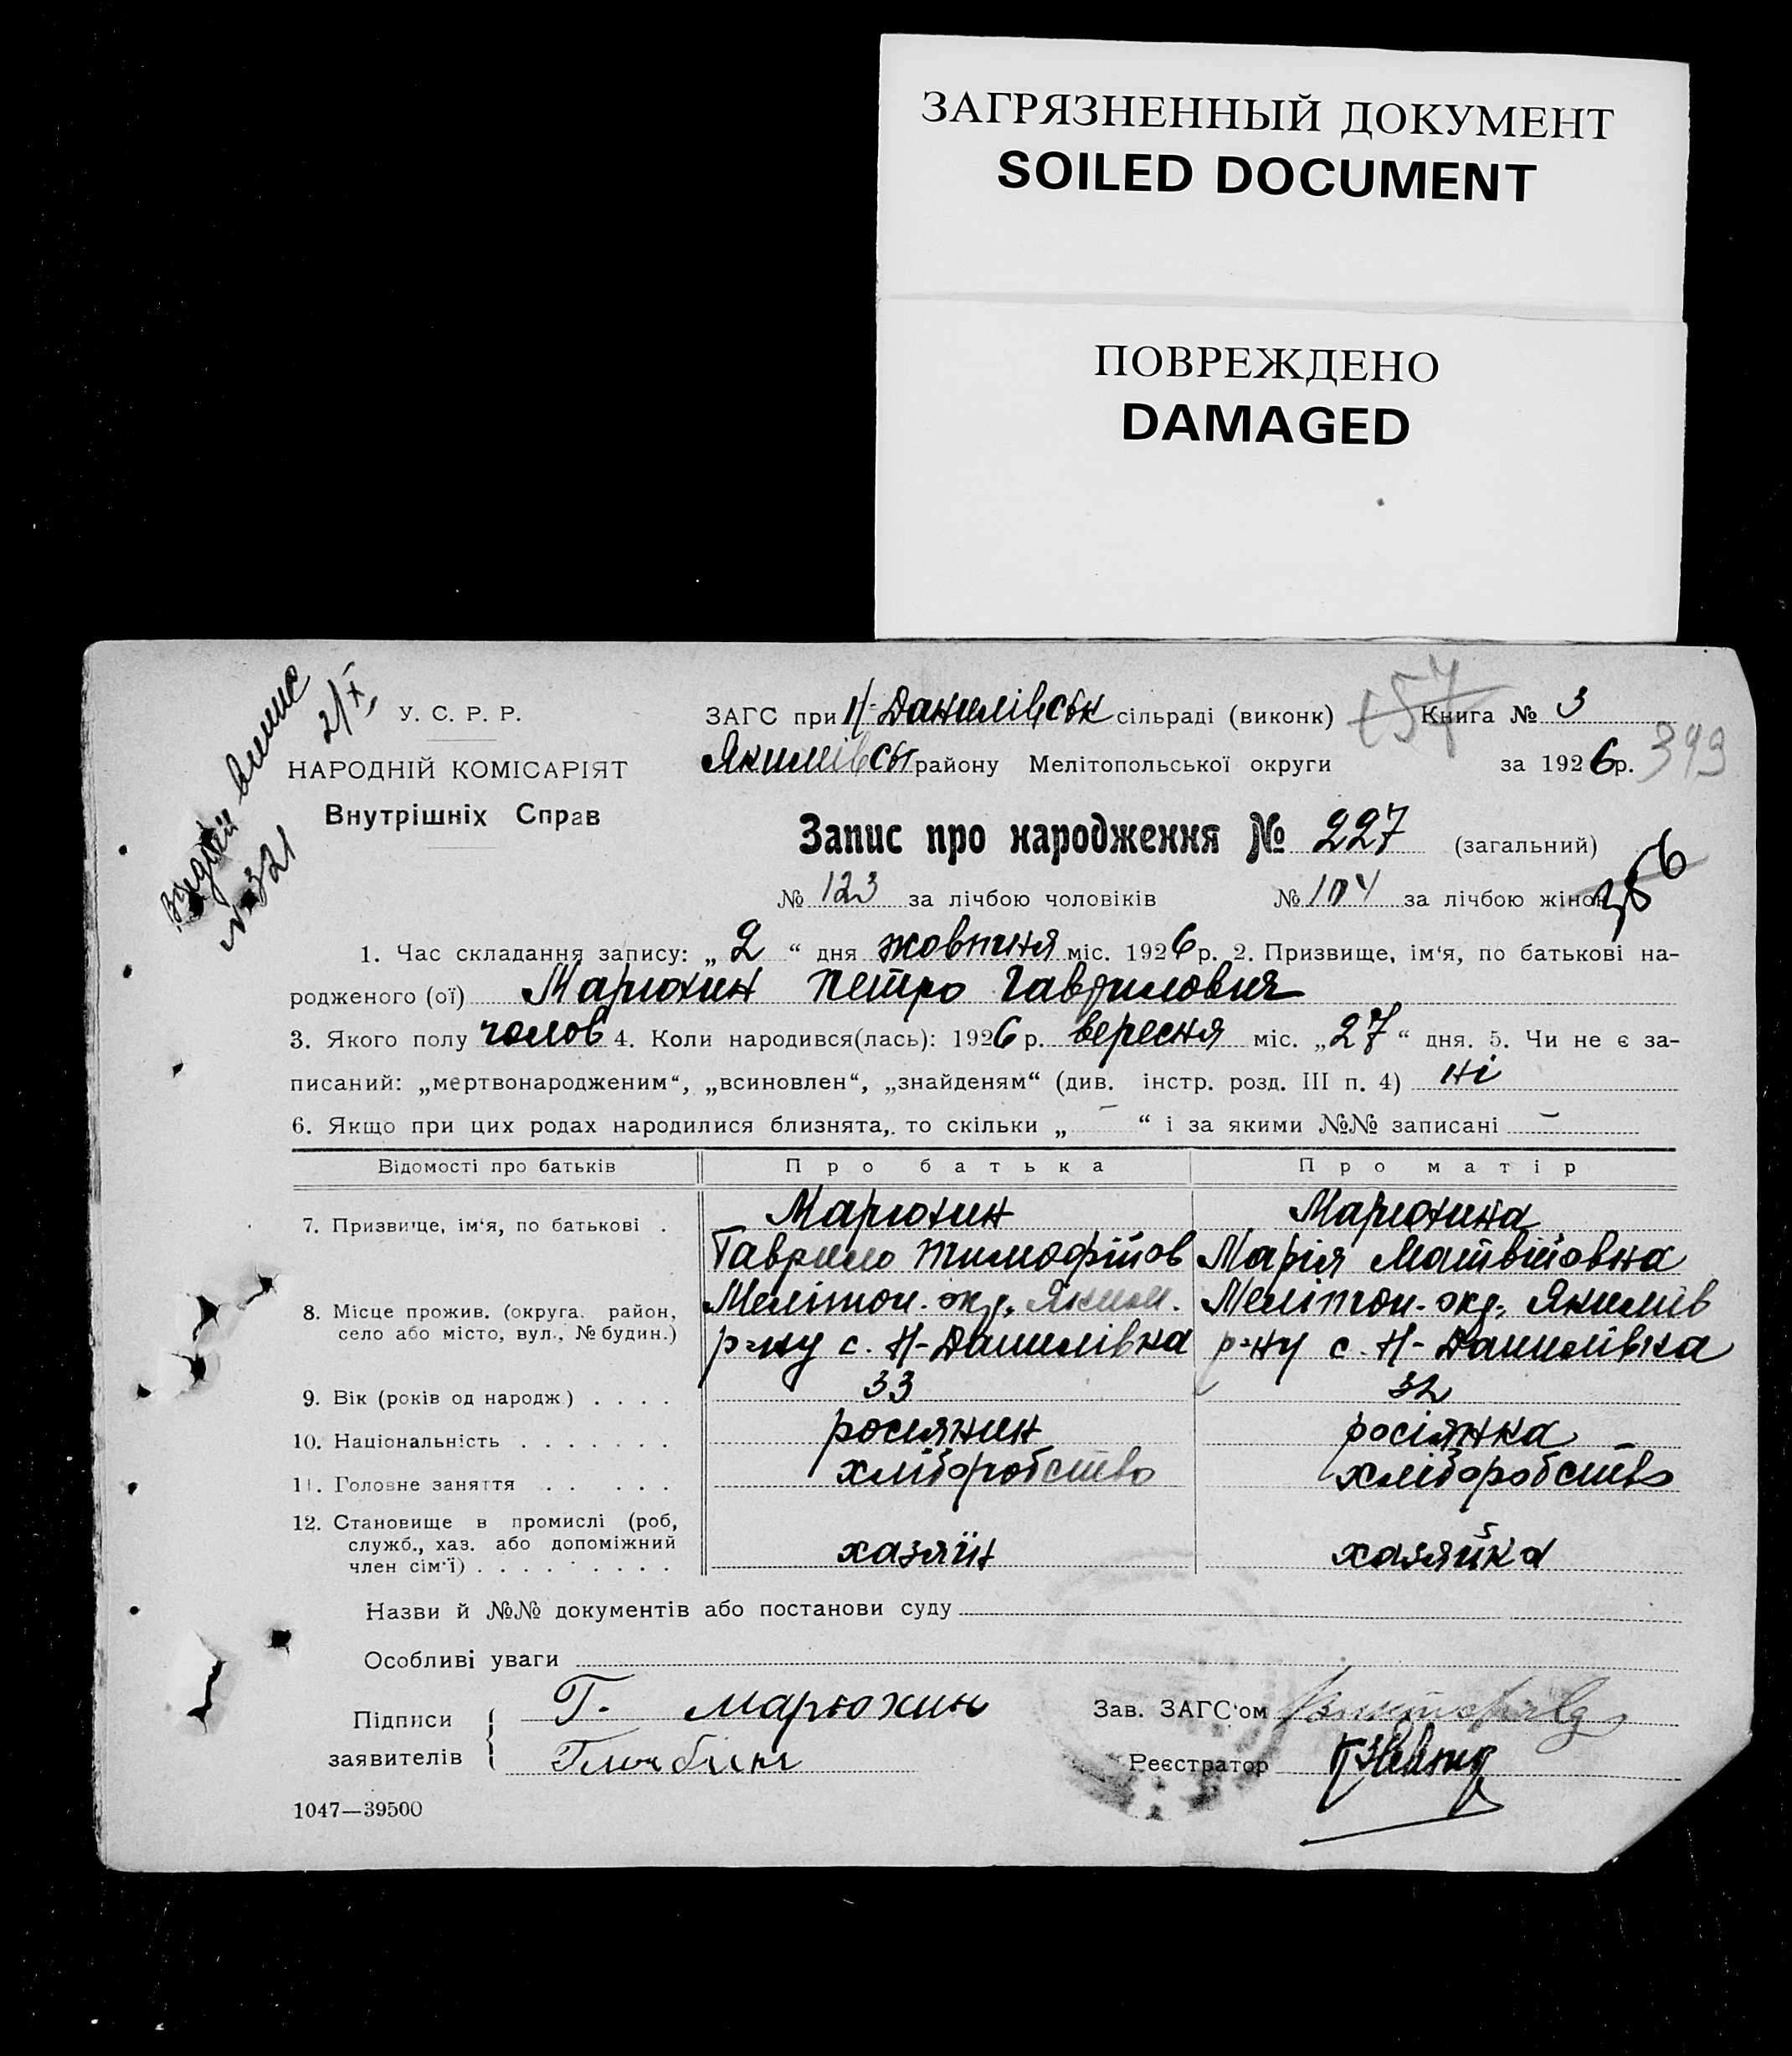 ЗАГРЯЗНЕННЫЙ ДОКУМЕНТ
SOILED DOCUMENT
ПОВРЕЖДЕНО
DAMAGED
№ 321
У. С. Р. Р.
НАРОДНІЙ КОМІСАРІЯТ
Внутрішніх Справ
ЗАГС при Н-Данилівськ сільраді (виконк) 157 Книга № 3
Якимівськ району Мелітопольської округи за 1926 р. 393
Запис про народження № 227 (загальний)
№ 123 за лічбою чоловіків № 104 за лічбою жінок 356
1. Час складання запису: „ 2 “ дня жовтня міс. 1926 р. 2. Призвище, ім‘я, по батькові на-
родженого (ої) Марюхин Петро Гаврилович
3. Якого полу чолов 4. Коли народився(лась): 1926 р. вересня міс. „27“ дня. 5. Чи не є за-
писаний: „мертвонародженим“, „всиновлен“, „знайденям“ (див. інстр. розд. III п. 4) ні
6. Якщо при цих родах народилися близнята, то скільки „ – “ і за якими №№ записані –
Відомості про батьків Про батька Про матір
7. Призвище, ім‘я, по батькові . Марюхин Марюхина
Гаврило Тимофійов Марія Матвійовна
8. Місце прожив. (округа. район, Мелітоп. окр. Яким. Меліпоп. окр. Якимів
село або місто, вул., № будин.) р-ну с. Н-Данилівка р-ну с. Н-Данилівка
9. Вік (років од народж) . . . . 33 32
10. Національність . . . . . . . росіянин росіянка
11. Головне заняття . . . . . хліборобство хліборобство
12. Становище в промислі (роб,
служб., хаз. або допоміжний хазяїн хазяйка
член сім‘ї) . . . . . . . . .
Назви й №№ документів або постанови суду
Особливі уваги
Підписи Г. Марюхин Зав. ЗАГС‘ом
заявителів Реєстратор
1047—39500